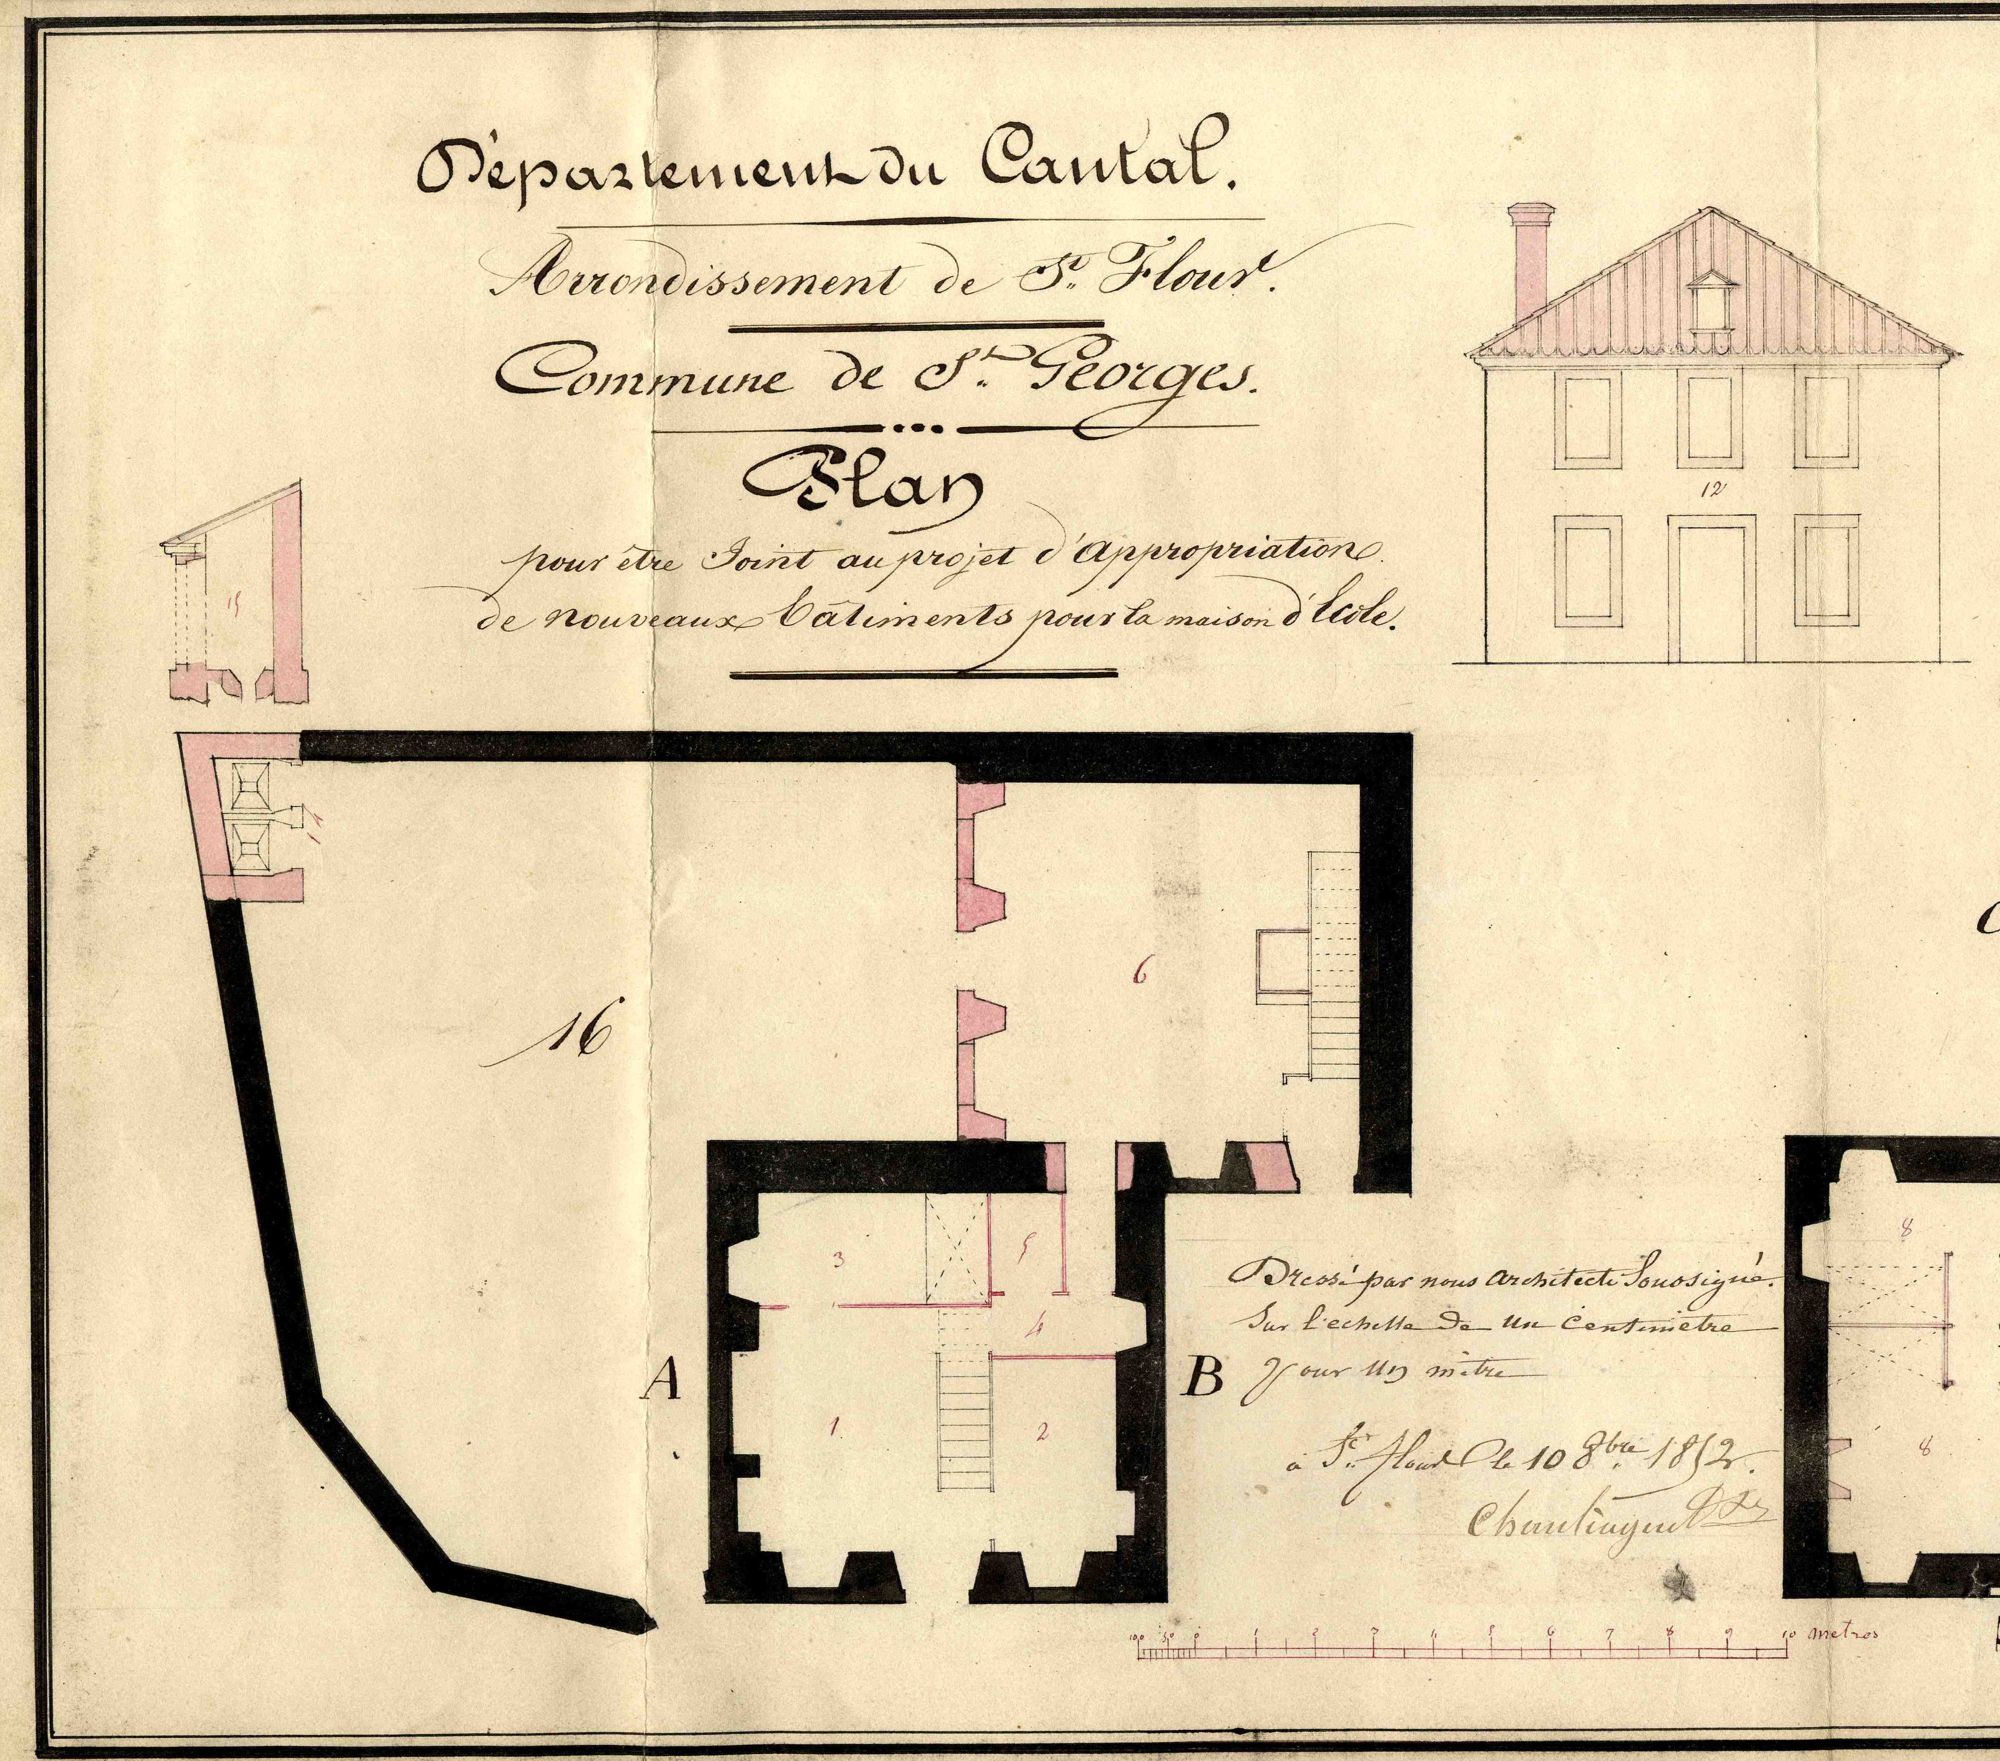 Département du Cantal.
Arrondissement de St. Flour.
Commune de St. Georges.
Plan
pour être Joint au projet d'appropriation
de nouveaux bâtiments pour la maison d'École.
12
15
14
16
6
3
5
4
A
1
2
B
8
8
Dressé par nous architecte Soussigné.
Sur l'echelle de un Centimètre
pour un mètre
à St. flour le 10 8bre 1852.
100 50 0 1 2 3 4 5 6 7 8 9 10 metres